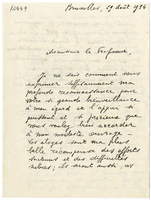 Bruxelles, 29 août 1934
Monsieur le Professeur,
Je ne sais comment vous
exprimer suffisamment ma
profonde reconnaissance pour
votre si grande bienveillance
à mon égard et l'appui si
puissant et si précieux que
vous voulez bien accorder à
mon modeste ouvrage —
Vos éloges sont ma plus
belle récompense des efforts
et des difficultés
; ils seront aussi, un